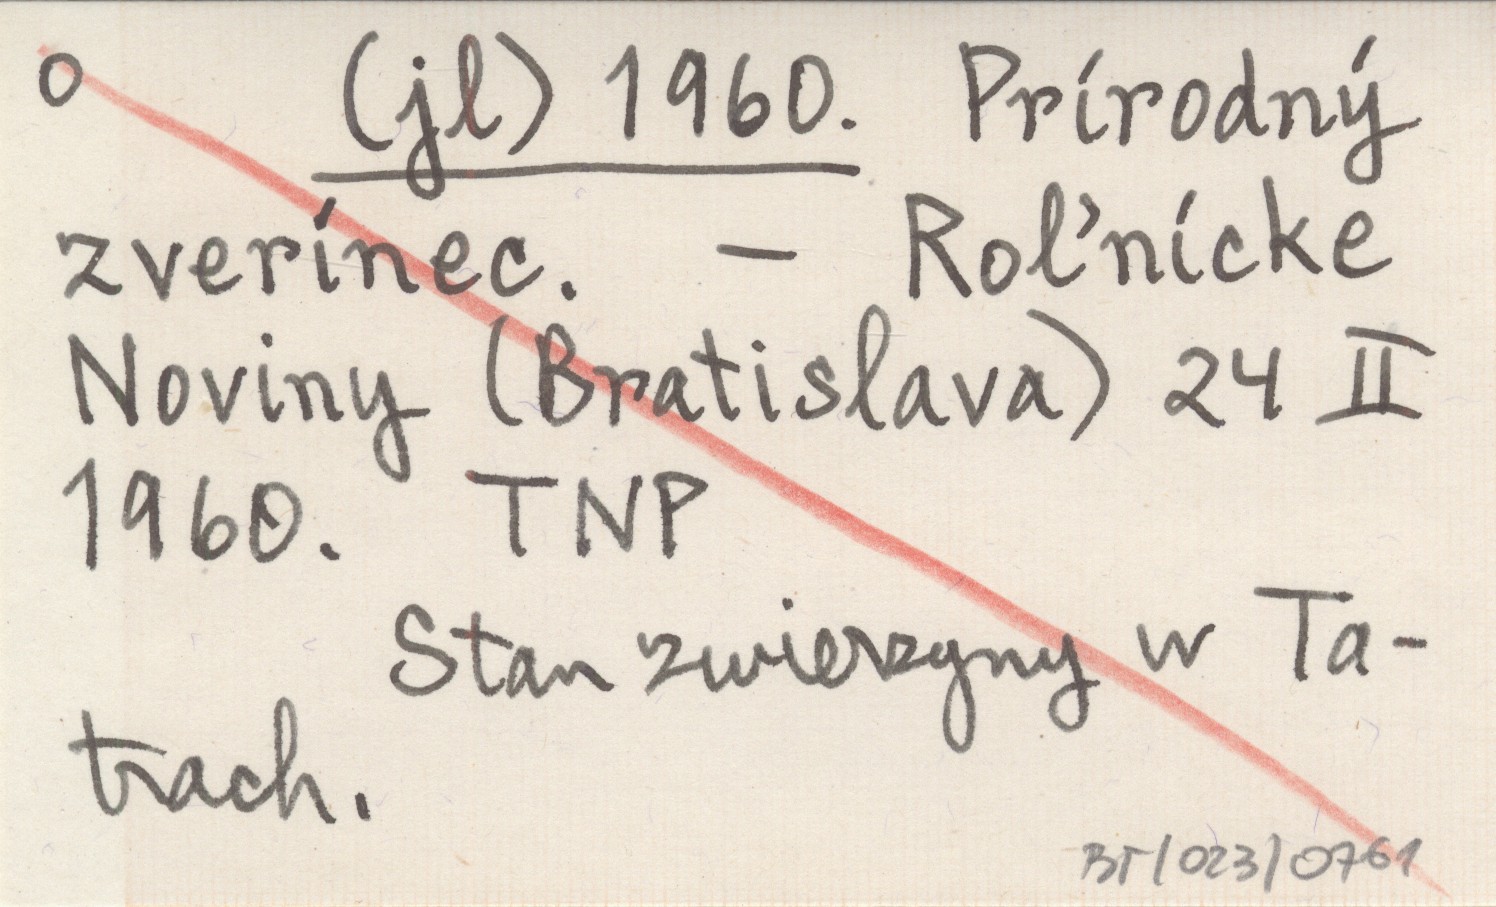 o (jl) 1960. Prírodný
zverínec. – Roľnícke
Noviny (Bratislava) 24 II
1960. TNP
Stan zwierzyny w Ta-
trach.
BT/023/0761